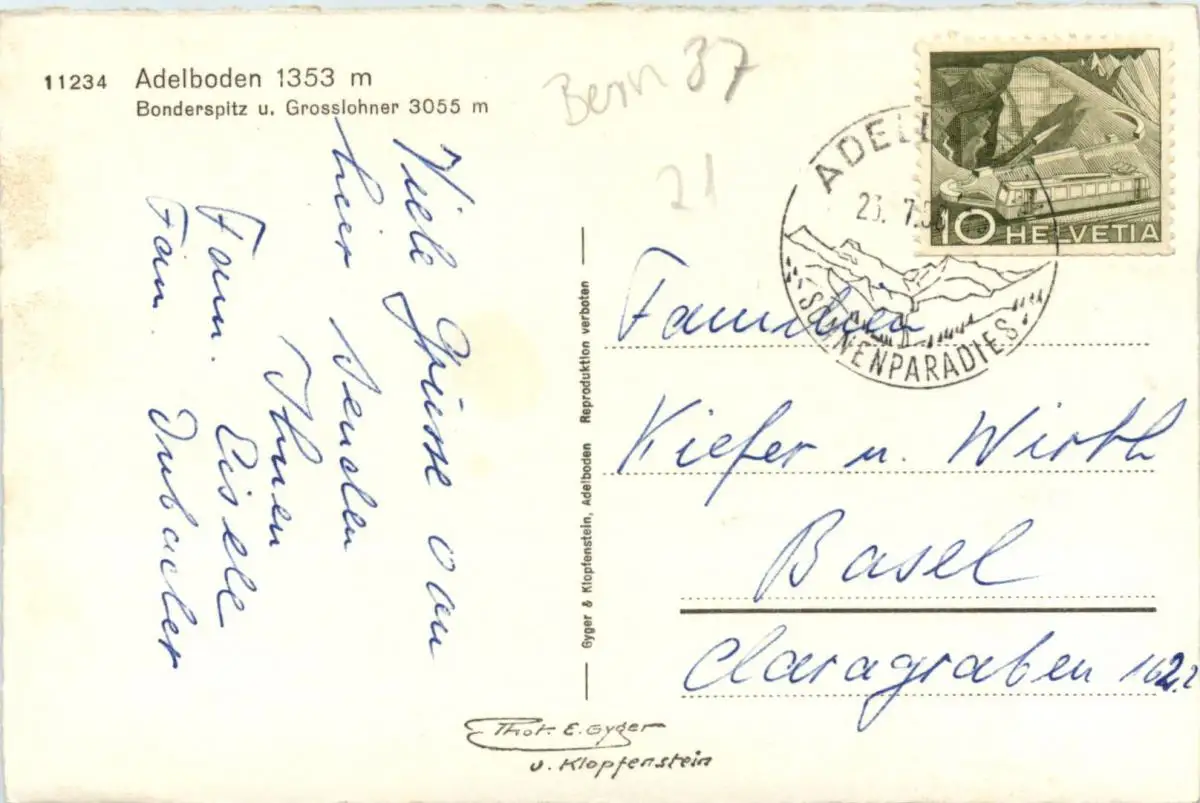 11234 Adelboden 1353 m
Bonderspitz u. Grosslohner 3055 m
Bern 37
21
Viele Grüsse von
hier senden
Ihnen
Fam. Eisele
Fam. Imbacher
Gyger & Klopfenstein, Adelboden Reproduktion verboten
ADEL
23. 7.5
SONNENPARADIES
10 HELVETIA
Familien
Kiefer u. Wirth
Basel
Claragraben 162
Phot. E. Gyger
u. Klopfenstein